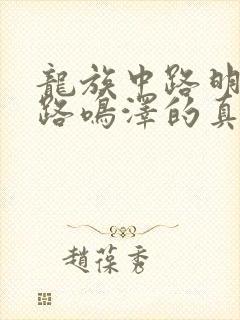 龍族中路明
路鳴澤的真
趙葆秀